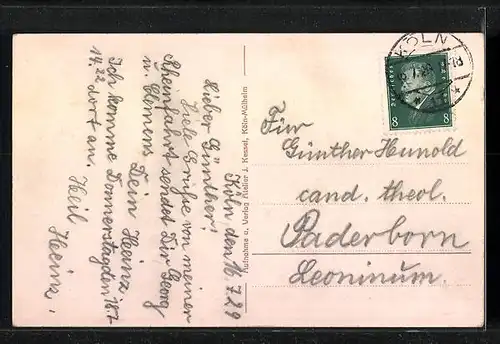 Köln den 16.7.29
Lieber Günther!
Viele Grüße von meiner
Rheinfahrt sendet Dir Georg
u. Clemens
Dein Heinz
Ich komme Donnerstag den 18.7
14.22 dort an.
Heil Heinz.
Aufnahme u. Verlag Atelier J. Kessel, Köln-Mülheim
KÖLN
8 8
Für
Günther Hunold
cand. theol.
Paderborn
Leoninum.